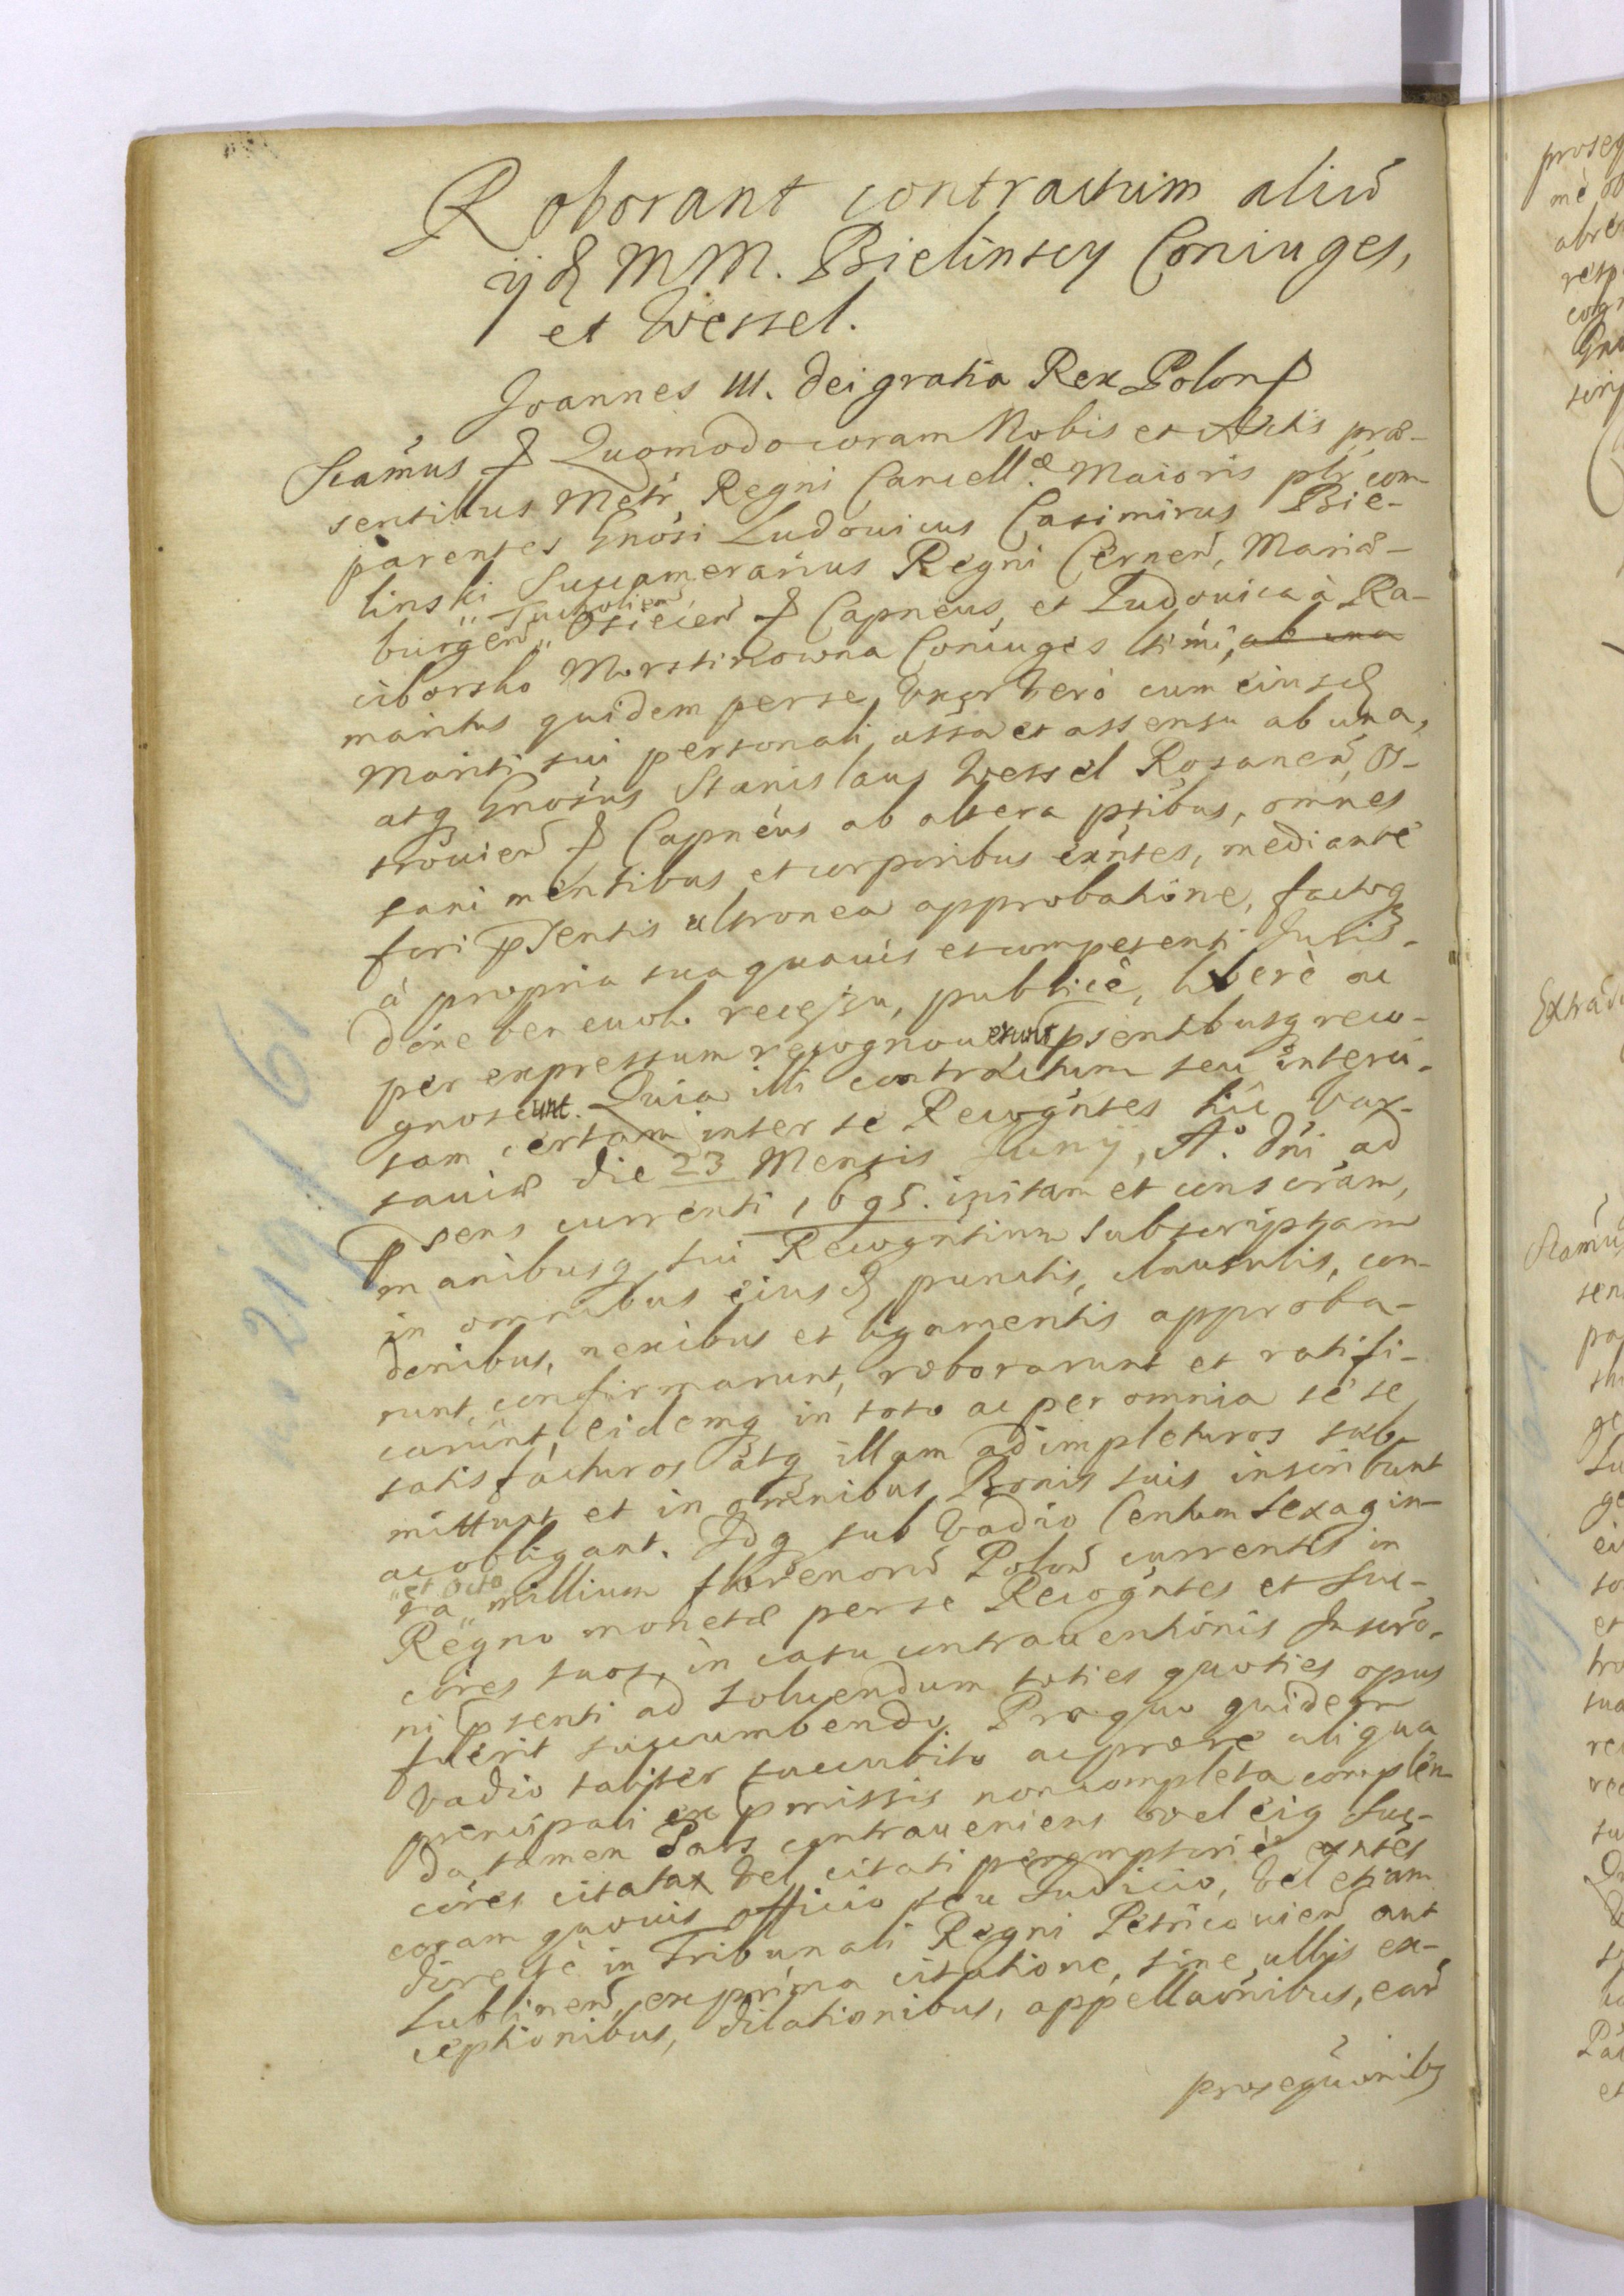 Roborant contractum aliũ
ijdē MM. Bielinscy Coniuges,
et Wessel.
Joannes III. dei gratia Rex Polon
Scãmus, Quomodo coram Nobis et Actis præ-
sentibus Metr. Regni Cancell.æ Maioris plr com-
parentes Gnosi Ludovicus Casimirus Bie-
linski Succamerarius Regni Cernen, Mariæ-
„Tucholien
burgen „ Osiecen Capneus, et Ludovica à Ra-
ciborsko Morstinowna Coniuges ltimi, ab una
maritus quidem per se, Uxor vero cum eiusdē
Mariti sui personali assa et assensu ab una,
atq Gnosus Stanislaus Wessel Rosanen, Os-
trouien Capneus ab altera ptibus, omnes
sani mentibus et corporibus exñtes, mediante
fori pſentis ultronea approbatione, factoq
à propria sua quavis et competenti Juris-
dõne beneuolo recessu, publicè, liberè ac
per expressum recognouerunt psentibusq reco-
gnoscunt. Quia illi contractum seu interci-
sam certam inter se Recogntes hic Var-
saviæ die 23 Mensis Junÿ, A.º dñi ad
psens currenti 1695. initam et conscrãm,
manibusq sui Recogntium subscriptam
in omnibus eiusdē punctis, clausulis, con-
dẽnibus, nexibus et ligamentis approba-
runt, confirmarunt, roborarunt et ratifi-
carunt, eidemq in toto ac per omnia se se
satisfacturos atq illam adimpleturos sub-
mittunt et in omnibus Bonis suis inscribunt
ac obligant. Idq sub Vadio Centum sexagin-
„et octo
ta „ millium florenorũ Polon currentis in
Regno monetæ per se Recogntes et Suc-
cõres suos, in casu contrauentionis Inscrõ-
ni psenti ad soluendum toties quoties opus
fuerit succumbendo. Pro quo quidem
Vadio taliter succubito ac pro re aliqua
principali ex præmissis non completa complen-
da, tamen Pars contraueniens vel eiq Suc-
cõres citata vel citati peremptoriè exñtes
coram quouis officio seu Judicio, vel etiam
directè in Tribunali Regni Petricouien aut
Lublinen, ex prima citatione, sine ullis ex-
ceptionibus, dilationibus, appellaõnibus, earũ
prosequũonibq